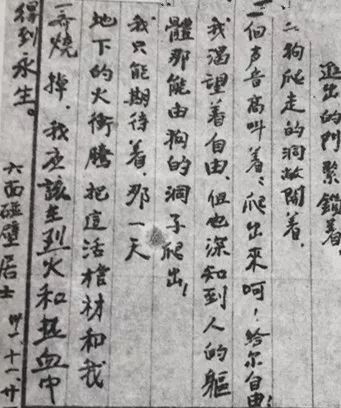 進出的門緊鎖着，
二狗爬走的洞敞開着，
一個声音高叫着：爬出來呵！給尔自由！
我渴望着自由，但也深知到人的軀
體那能由狗的洞子爬出！
我只能期待着，那一天
地下的火衝騰把這活棺材和我
一齊燒掉，我应該在烈火和热血中
得到永生。
六面碰壁居士 卅一、十一、廿